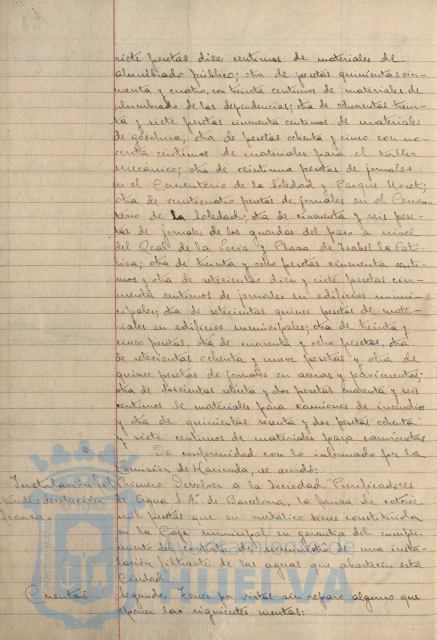 siete pesetas diez centimos de materiales de
alumbrado público; otra de pesetas quinientas cin-
cuenta y cuatro, con treinta centimos de materiales de
alumbrado de las dependencias; otra de ochocientas trein-
ta y siete pesetas cincuenta centimos de materiales
de gasolina; otra de pesetas ochenta y cinco con no-
venta centimos de materiales para el taller
mecanico; otra de veintiuna pesetas de jornales
en el Cementerio de la Soledad y Parque Moret;
otra de veinticuatro pesetas de jornales en el Cemen-
terio de la Soledad; otra de cincuenta y seis pese-
tas de jornales de los guardas del paso a nivel
del Real de la Feria y Plaza de Isabel la Cató-
lica; otra de treinta y ocho pesetas cincuenta centi-
mos y otra de setecientas diez y siete pesetas cin-
cuenta centimos de jornales en edificios munici-
pales; otra de setecientas quince pesetas de mate-
riales en edificios municipales; otra de treinta y
cinco pesetas, otra de cuarenta y ocho pesetas, otra
de setecientas ochenta y nueve pesetas y otra de
quince pesetas de jornales en aceras y pavimentos;
otra de doscientas setenta y dos pesetas cuarenta y seis
centimos de materiales para camiones de incendios
y otra de quinientas sesenta y dos pesetas ochenta
y siete centimos de materiales para camionetas
De conformidad con lo informado por la
Comisión de Hacienda, se acordó:
Instalación fil
trante: devolución
fianza.
Primero: Devolver a la Sociedad "Purificadores
de Agua S.A." de Barcelona, la fianza de catorce
mil pesetas que en metálico tiene constituida
en la Caja municipal en garantia del cumpli-
miento del contrato de suministro de una insta-
lación filtrante de las aguas que abastecen esta
Ciudad.
Cuentas
Segundo: Tener por vistas sin reparo alguno que
oponer las siguientes cuentas:
Ayuntamiento de
HUELVA